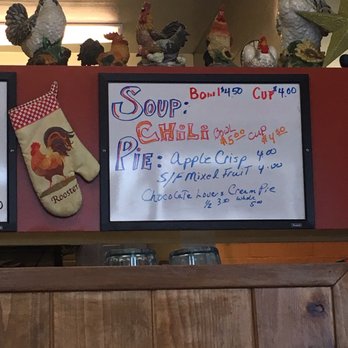 SOUP: BOWL $4.50 CUP $4.00
CHILI BOWL $5.00 CUP $4.50
PIE: APPLE CRISP 4.00
S/F MIXED FRUIT 4.00
CHOCOLATE LOVERS CREAM PIE
½ 3.00 WHOLE 5.00
Rooster